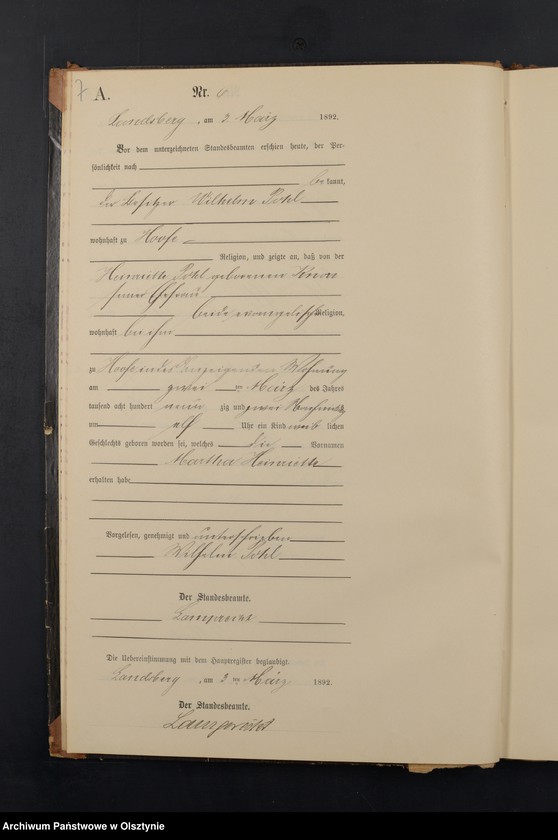 7 A. Nr. 6
Landsberg, am 3 März 1892.
Vor dem unterzeichneten Standesbeamten erschien heute, der Per-
sönlichkeit nach
be kannt,
der Besitzer Wilhelm Pohl
wohnhaft zu Hoofe
Religion, und zeigte an, daß von der
Henriette Pohl geborenen
seiner Ehefrau
beide evangelischer Religion,
wohnhaft bei ihm
zu Hoofe in des Anzeigenden Wohnung
am zwei ten März des Jahres
tausend acht hundert neun zig und zwei Nachmittags
um elf Uhr ein Kind weib lichen
Geschlechts geboren worden sei, welches die Vornamen
Martha Henriette
erhalten habe
Vorgelesen, genehmigt und unterschrieben
Wilhelm Pohl
Der Standesbeamte.
Die Uebereinstimmung mit dem Hauptregister beglaubigt.
Landsberg, am 3 ten März 1892.
Der Standesbeamte.
Archiwum Państwowe w Olsztynie